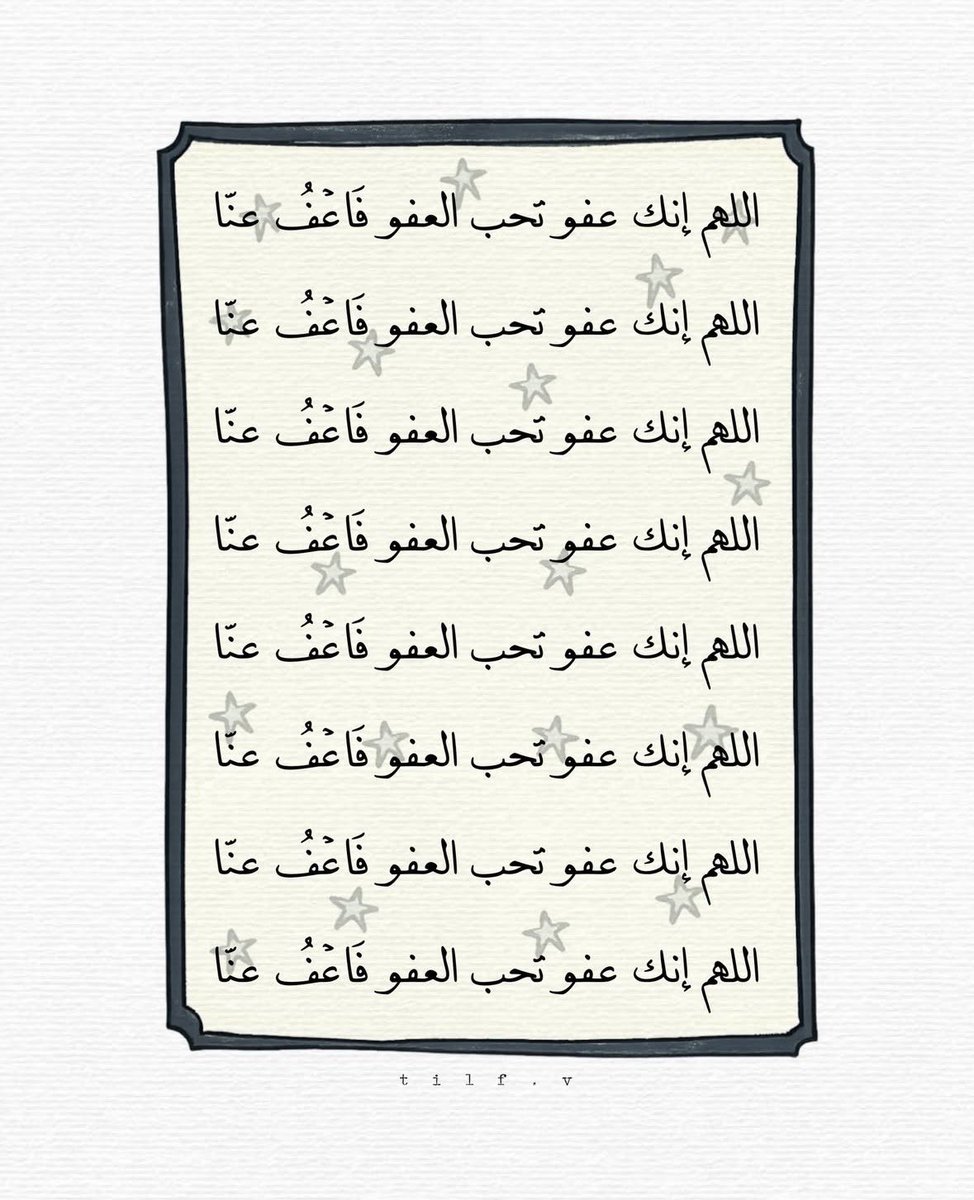 اللهم إنك عفو تحب العفو فَاعۡفُ عنّا
اللهم إنك عفو تحب العفو فَاعۡفُ عنّا
اللهم إنك عفو تحب العفو فَاعۡفُ عنّا
اللهم إنك عفو تحب العفو فَاعۡفُ عنّا
اللهم إنك عفو تحب العفو فَاعۡفُ عنّا
اللهم إنك عفو تحب العفو فَاعۡفُ عنّا
اللهم إنك عفو تحب العفو فَاعۡفُ عنّا
اللهم إنك عفو تحب العفو فَاعۡفُ عنّا
t i l f . v